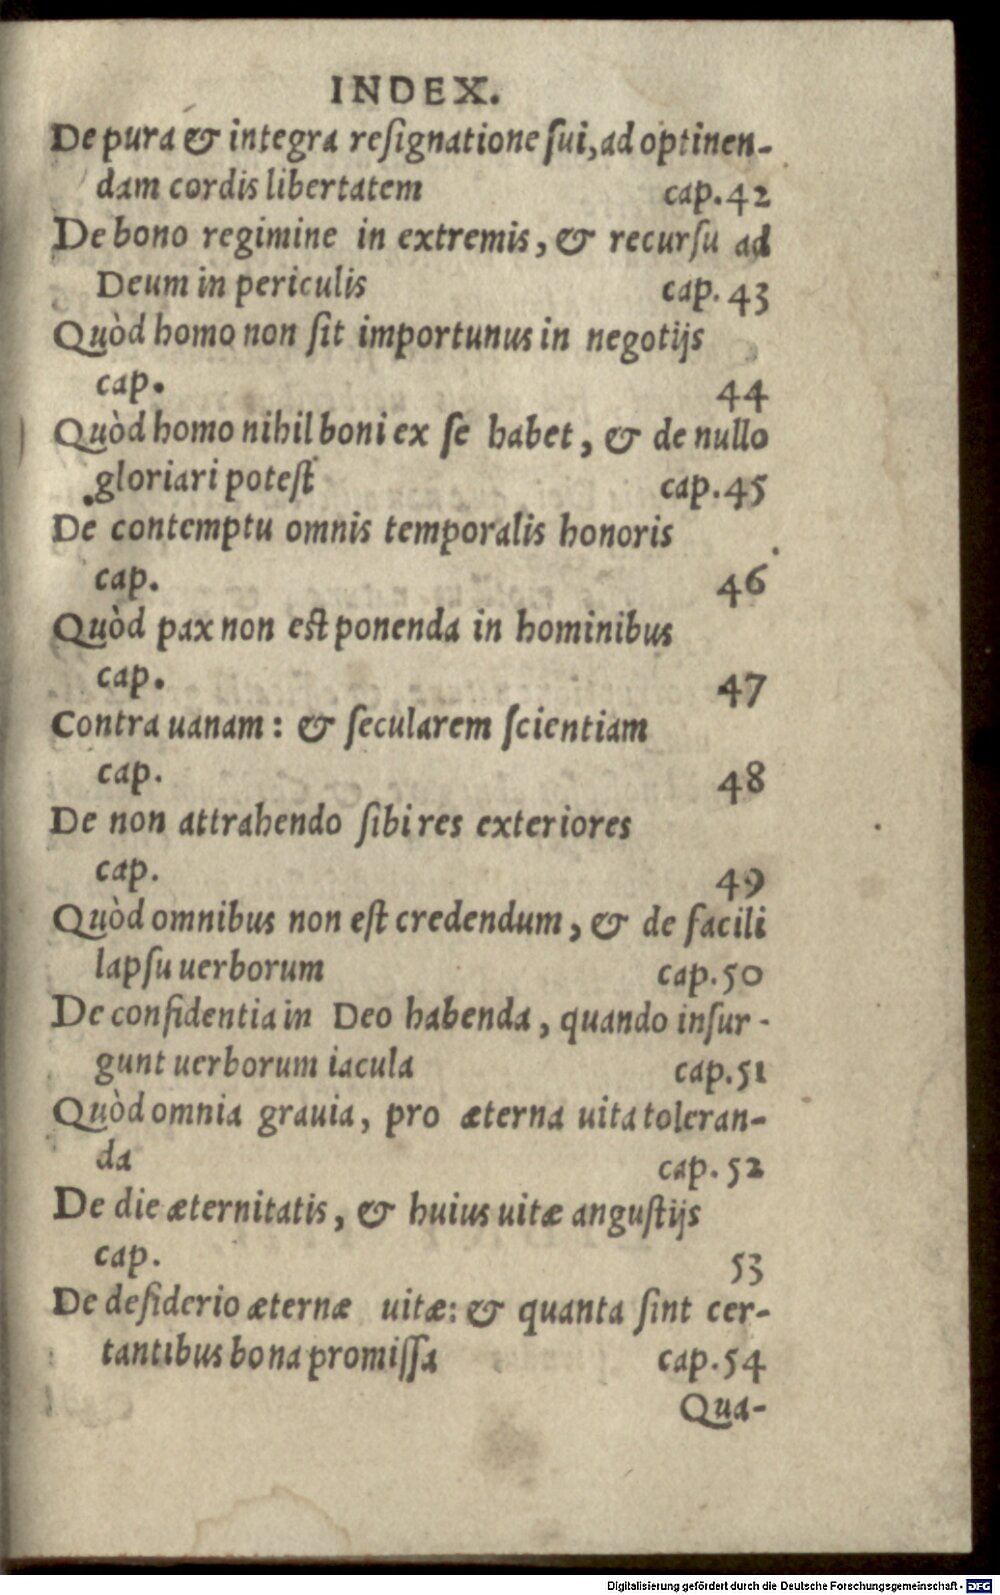 INDEX.
De pura & integra reſignatione ſui, ad optinen-
dam cordis libertatem cap. 42
De bono regimine in extremis, & recurſu ad
Deum in periculis cap. 43
Quòd homo non ſit importunus in negotijs
cap. 44
Quòd homo nihil boni ex ſe habet, & de nullo
gloriari poteſt cap. 45
De contemptu omnis temporalis honoris
cap. 46
Quòd pax non eſt ponenda in hominibus
cap. 47
Contra uanam: & ſecularem ſcientiam
cap. 48
De non attrahendo ſibi res exteriores
cap. 49
Quòd omnibus non eſt credendum, & de facili
lapſu uerborum cap. 50
De confidentia in Deo habenda, quando inſur-
gunt uerborum iacula cap. 51
Quòd omnia grauia, pro æterna uita toleran-
da cap. 52
De die æternitatis, & huius uitæ anguſtijs
cap. 53
De deſiderio æternæ uitæ: & quanta ſint cer-
tantibus bona promiſſa cap. 54
Qua-
Digitalisierung gefördert durch die Deutsche Forschungsgemeinschaft - DFG